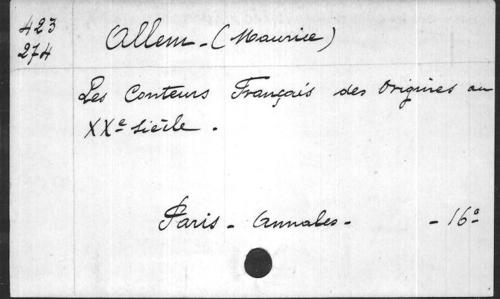 423
274
Allem - (Maurice)
Les Conteurs Français des Origines au
XXe Siècle.
Paris - Annales - - 16º